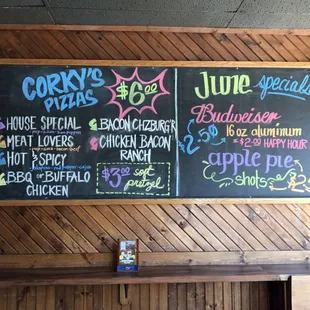 CORKY'S
PIZZAS
$6.00
HOUSE SPECIAL
MEAT LOVERS
HOT & SPICY
BBQ OR BUFFALO
CHICKEN
BACON CHZBURG'R
CHICKEN BACON
RANCH
$3.00 soft
pretzel
JUNE specials
Budweiser
2.50
16 oz aluminum
$2.00 HAPPY HOUR
apple pie
shots